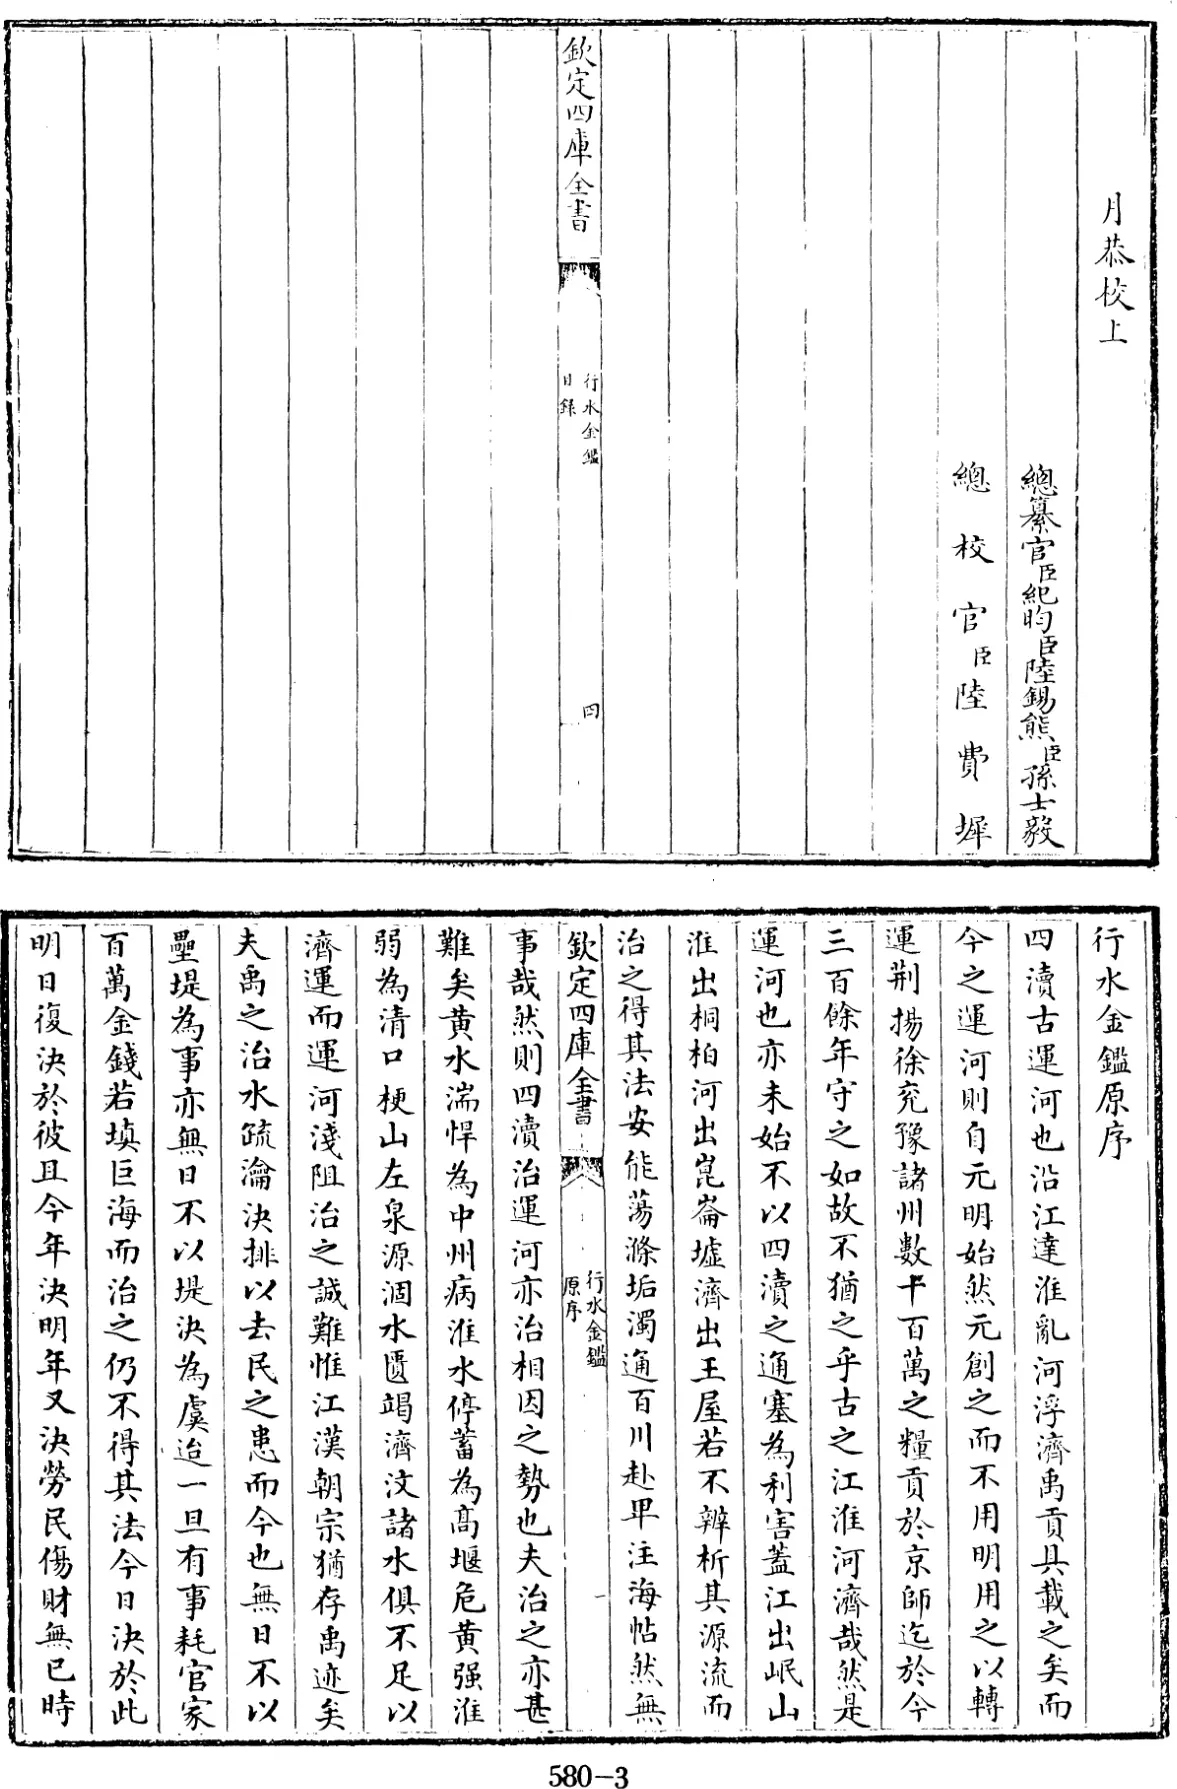 月恭校上
總纂官臣紀昀臣陸錫熊臣孫士毅
總校官臣陸費墀
欽定四庫全書
行水金鑑
目錄
四
行水金鑑原序
四瀆古運河也沿江達淮亂河浮濟禹貢具載之矣而
今之運河則自元明始然元創之而不用明用之以轉
運荆揚徐兖豫諸州數千百萬之糧貢於京師迄於今
三百餘年守之如故不猶之乎古之江淮河濟哉然是
運河也亦未始不以四瀆之通塞為利害蓋江出岷山
淮出桐柏河出崑崙墟濟出王屋若不辨析其源流而
治之得其法安能蕩滌垢濁通百川赴卑注海帖然無
欽定四庫全書
行水金鑑
原序
一
事哉然則四瀆治運河亦治相因之勢也夫治之亦甚
難矣黄水湍悍為中州病淮水停蓄為高堰危黄强淮
弱為清口梗山左泉源涸水匱竭濟汶諸水俱不足以
濟運而運河淺阻治之誠難惟江漢朝宗猶存禹迹矣
夫禹之治水疏瀹決排以去民之患而今也無日不以
壘堤為事亦無日不以堤決為虞迨一旦有事耗官家
百萬金錢若填巨海而治之仍不得其法今日決於此
明日復決於彼且今年決明年又決勞民傷財無已時
580-3